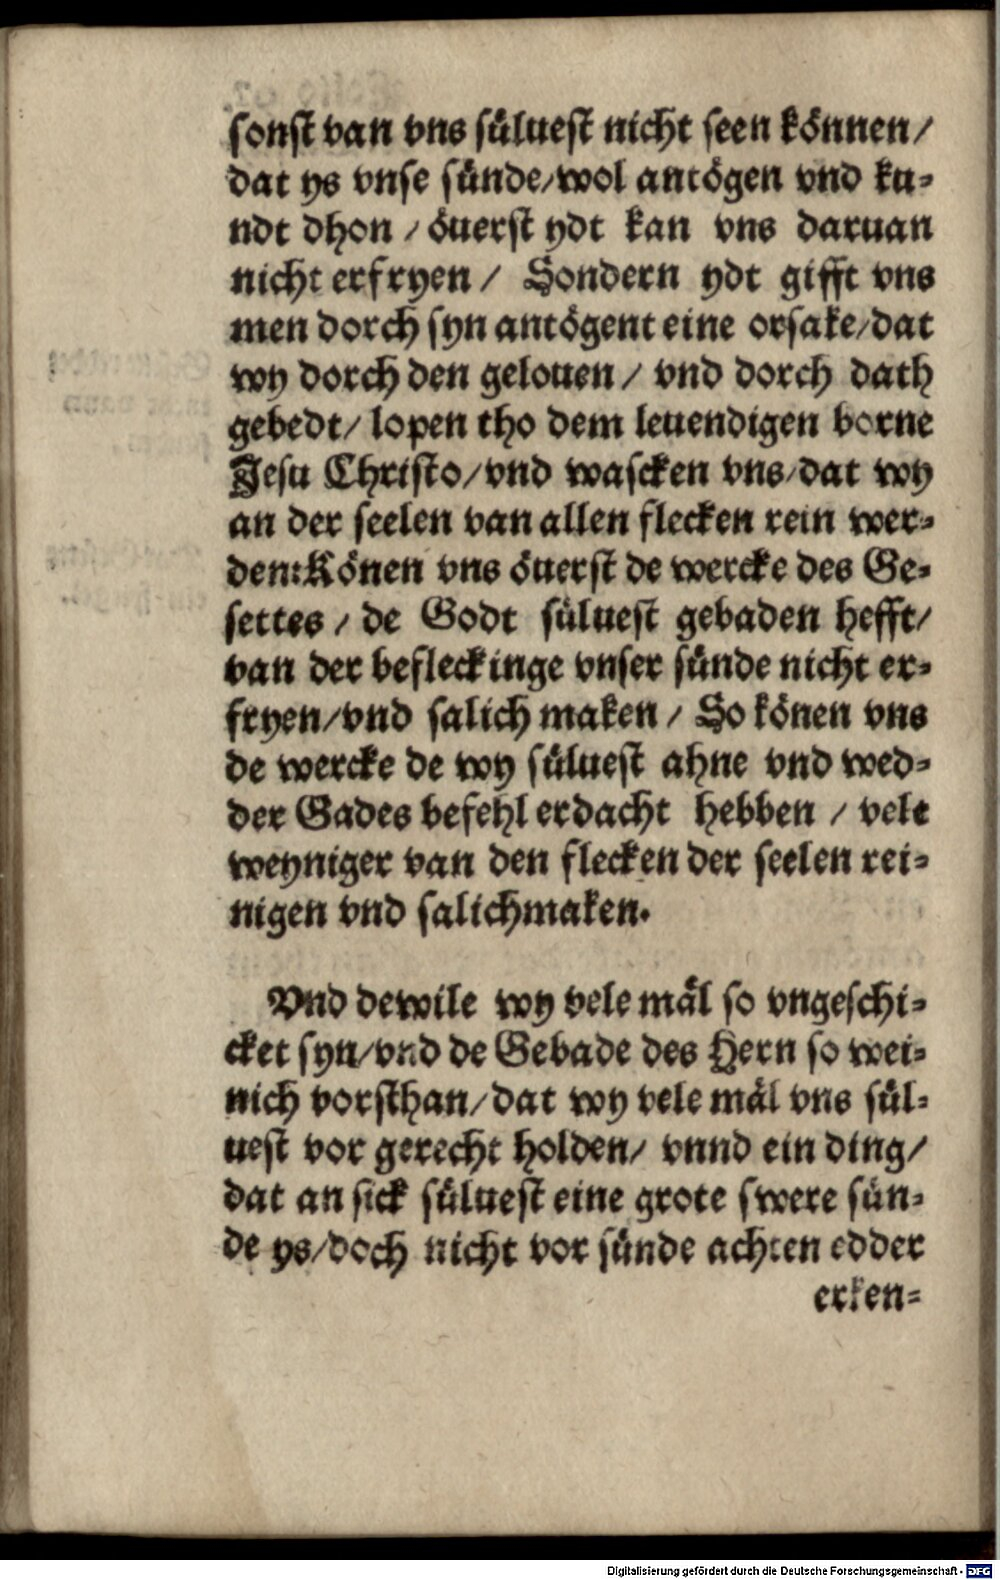 sonst van vns süluest nicht seen können/
dat ys vnse sünde/wol antögen vnd ku-
ndt dhon / öuerst ydt kan vns daruan
nicht erfryen / Sondern ydt gifft vns
men dorch syn antögent eine orsake/dat
wy dorch den gelouen / vnd dorch dath
gebedt/ lopen tho dem leuendigen borne
Jesu Christo/vnd wascken vns/dat wy
an der seelen van allen flecken rein wer-
den:Könen vns öuerst de wercke des Ge-
settes / de Godt süluest gebaden hefft/
van der befleckinge vnser sünde nicht er-
fryen/vnd salich maken / So könen vns
de wercke de wy süluest ahne vnd wed-
der Gades befehl erdacht hebben / vele
weyniger van den flecken der seelen rei-
nigen vnd salichmaken.
Vnd dewile wy vele mäl so vngeschi-
cket syn/vnd de Gebade des Hern so wei-
nich vorsthan/dat wy vele mäl vns sül-
uest vor gerecht holden/ vnnd ein ding/
dat an sick süluest eine grote swere sün-
de ys/doch nicht vor sünde achten edder
erken-
Digitalisierung gefördert durch die Deutsche Forschungsgemeinschaft - DFG